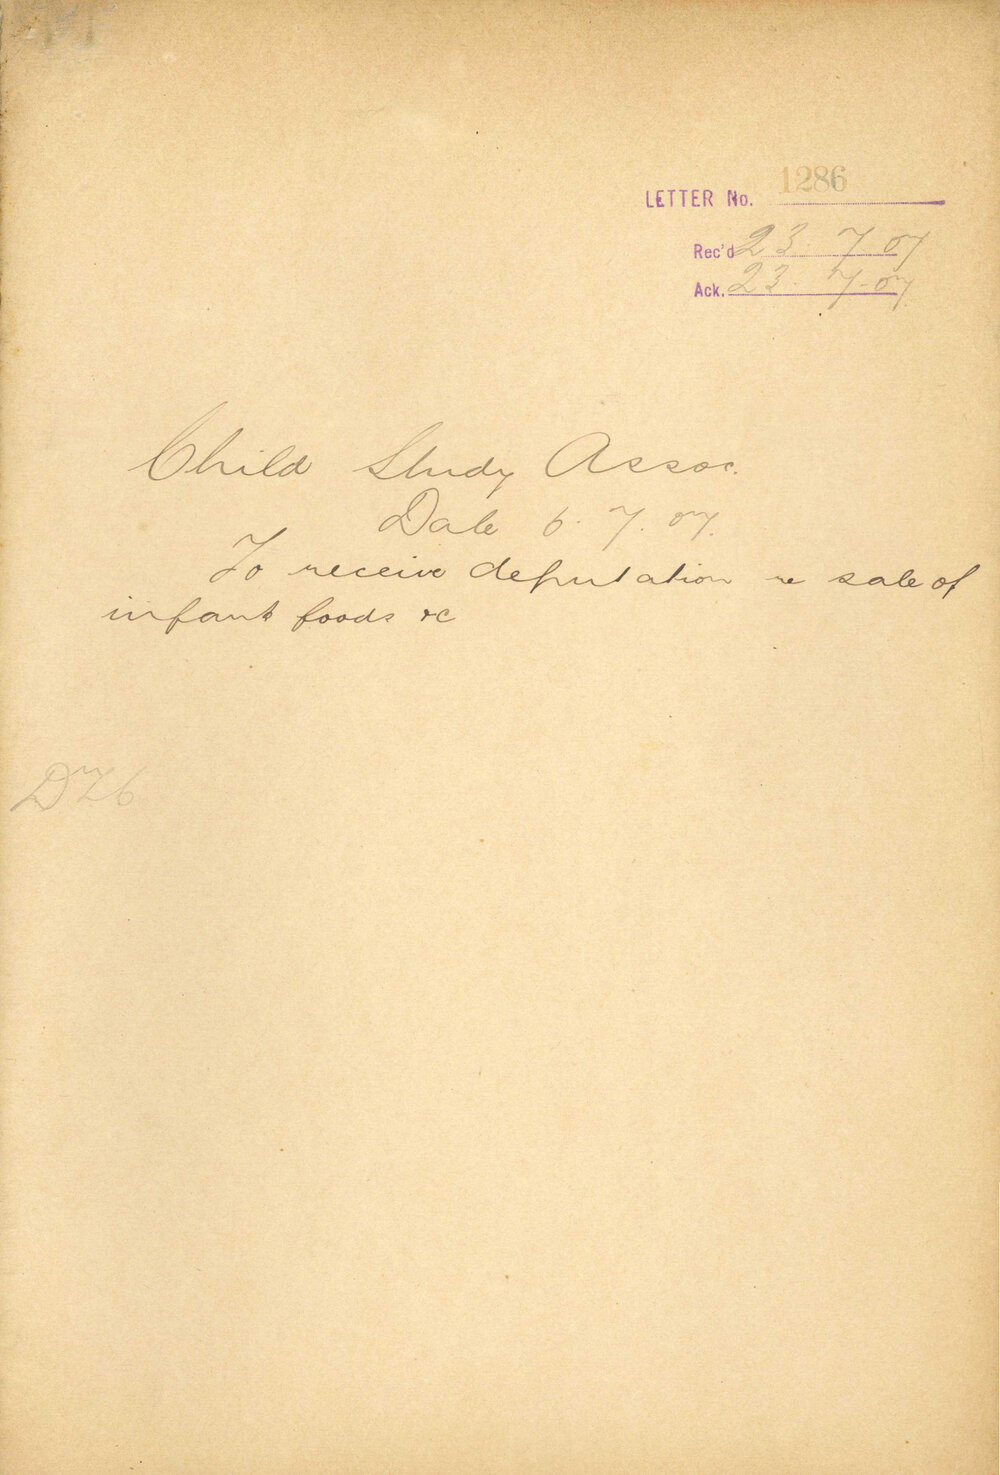 LETTER No. 1286
Rec'd 23. 7 07
Ack. 23. 7-07.
Child Study Assoc.
Date 6. 7. 07.
To receive deputation re sale of
infant foods &c